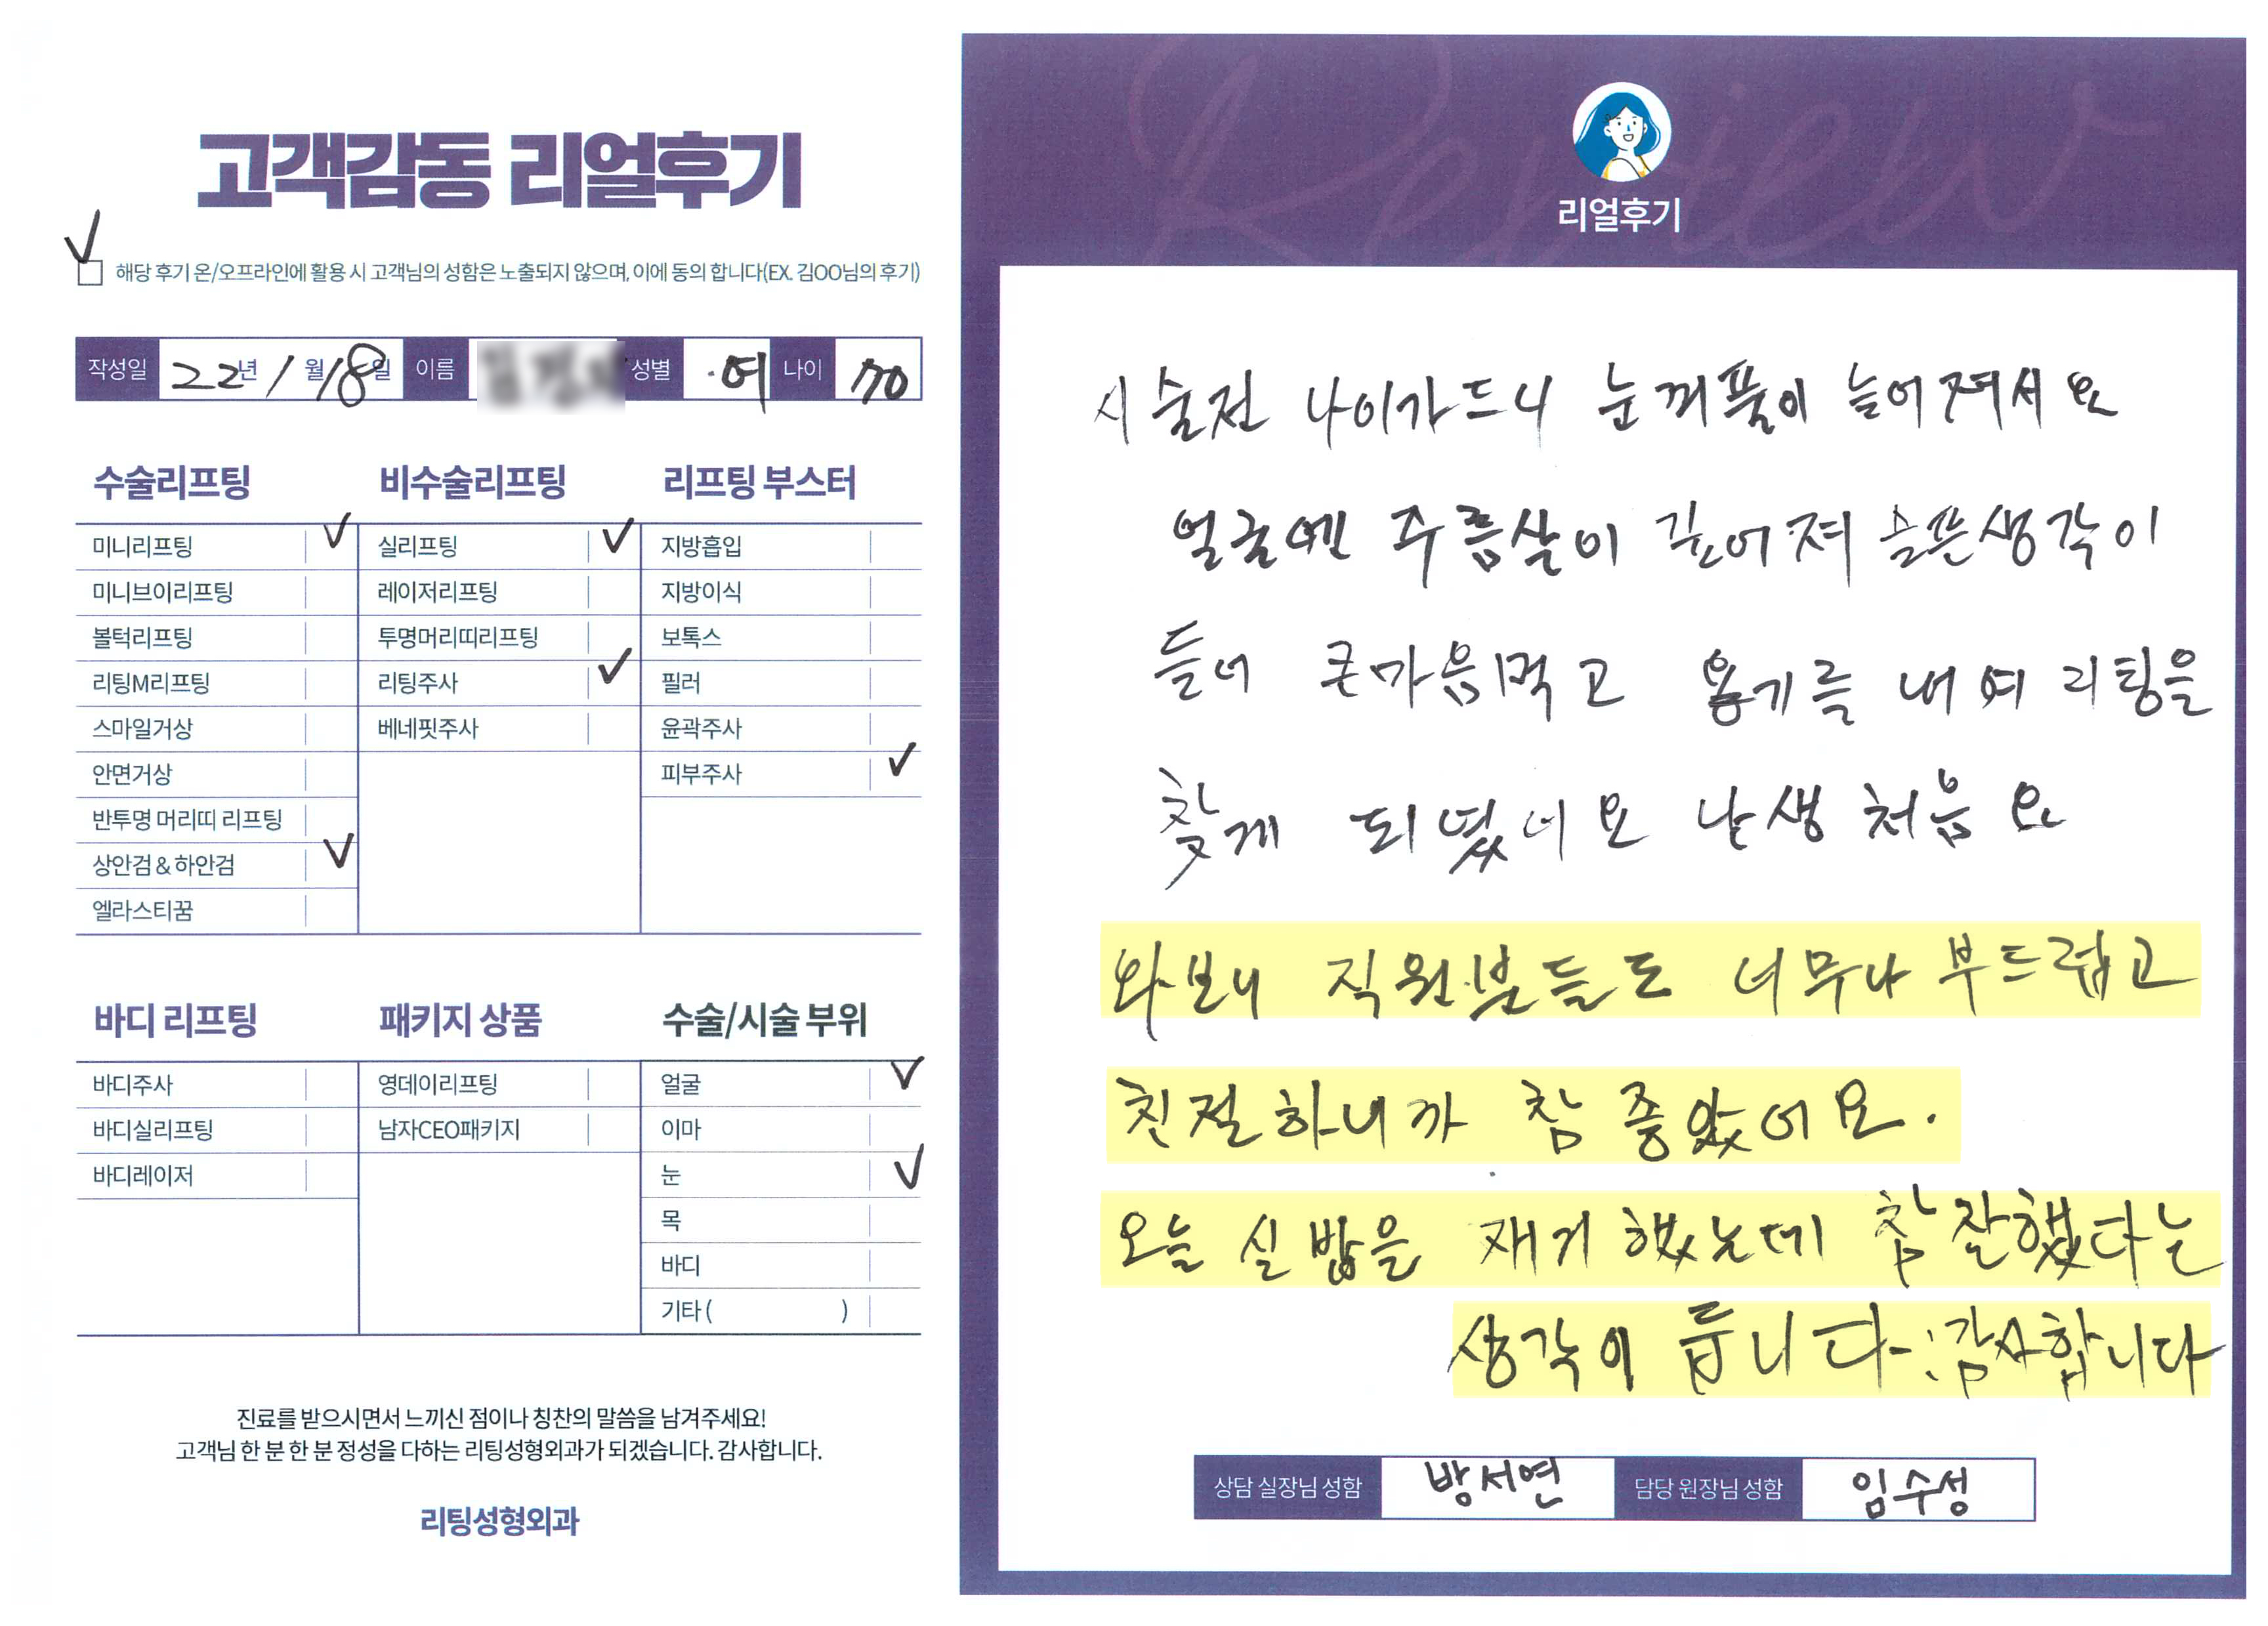 고객감동 리얼후기
✓
□ 해당 후기 온/오프라인에 활용 시 고객님의 성함은 노출되지 않으며, 이에 동의 합니다(EX. 김OO님의 후기)
작성일 22년 1월 18일 이름 성별 여 나이 70
수술리프팅 비수술리프팅 리프팅 부스터
미니리프팅 ✓ 실리프팅 ✓ 지방흡입
미니브이리프팅 레이저리프팅 지방이식
볼턱리프팅 투명머리띠리프팅 보톡스
리팅M리프팅 리팅주사 ✓ 필러
스마일거상 베네핏주사 윤곽주사
안면거상 피부주사 ✓
반투명 머리띠 리프팅
상안검 & 하안검 ✓
엘라스티꿈
바디 리프팅 패키지 상품 수술/시술 부위
바디주사 영데이리프팅 얼굴 ✓
바디실리프팅 남자CEO패키지 이마
바디레이저 눈 ✓
목
바디
기타 ( )
진료를 받으시면서 느끼신 점이나 칭찬의 말씀을 남겨주세요!
고객님 한 분 한 분 정성을 다하는 리팅성형외과가 되겠습니다. 감사합니다.
리팅성형외과
Review
리얼후기
시술전 나이가드니 눈꺼풀이 늘어져서요
얼굴엔 주름살이 깊어져 슬픈생각이
들어 큰마음먹고 용기를 내여 리팅을
찾게 되였어요 난생 처음요
와보니 직원분들도 너무나 부드럽고
친절하니까 참 좋았어요.
오늘 실밥을 재거했는데 참 잘했다는
생각이 듭니다. 감사합니다
상담 실장님 성함 방서연 담당 원장님 성함 임수성